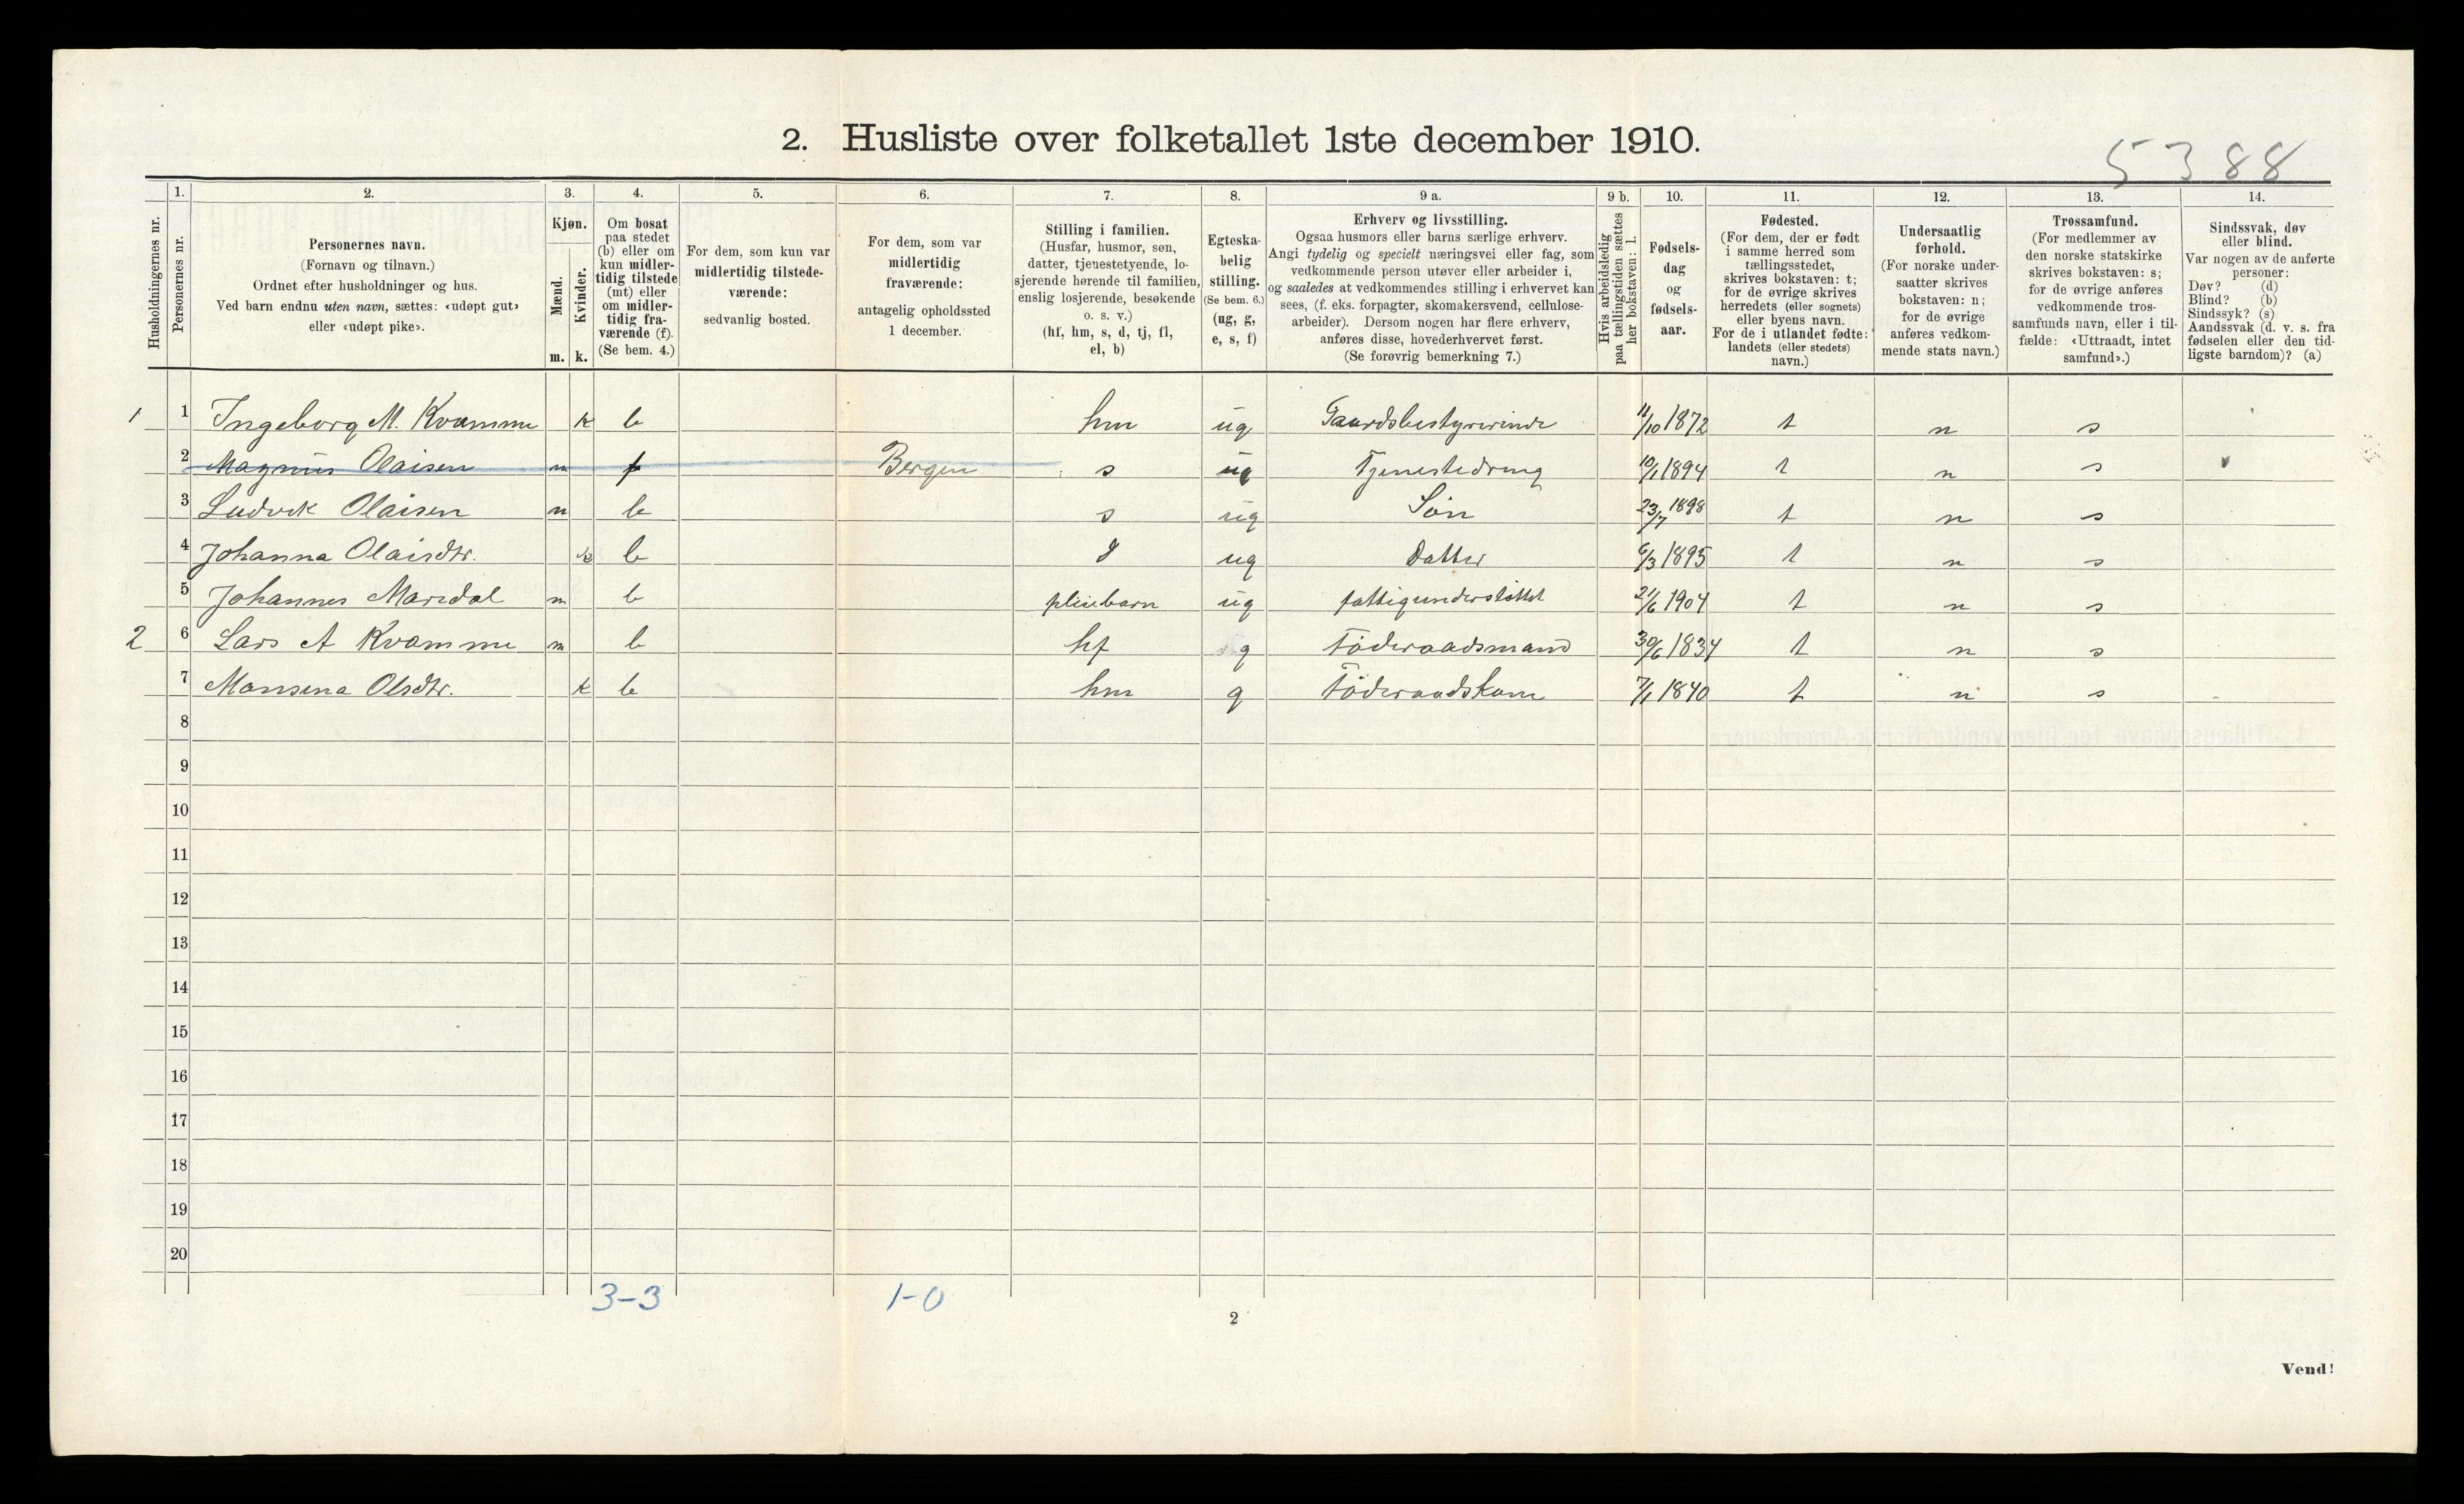 2. Husliste over folketallet 1ste december 1910.
5388
Husholdningernes nr.
1.
Personernes nr.
2.
Personernes navn.
(Fornavn og tilnavn.)
Ordnet efter husholdninger og hus.
Ved barn endnu uten navn, sættes: «udøpt gut»
eller «udøpt pike».
3.
Kjøn.
Mænd.
Kvinder.
m. k.
4.
Om bosat
paa stedet
(b) eller om
kun midler-
tidig tilstede
(mt) eller
om midler-
tidig fra-
værende (f).
(Se bem. 4.)
5.
For dem, som kun var
midlertidig tilstede-
værende:
sedvanlig bosted.
6.
For dem, som var
midlertidig
fraværende:
antagelig opholdssted
1 december.
7.
Stilling i familien.
(Husfar, husmor, søn,
datter, tjenestetyende, lo-
sjerende hørende til familien,
enslig losjerende, besøkende
o. s. v.)
(hf, hm, s, d, tj, fl,
el, b)
8.
Egteska-
belig
stilling.
(Se bem. 6.)
(ug, g,
e, s, f)
9 a.
Erhverv og livsstilling.
Ogsaa husmors eller barns særlige erhverv.
Angi tydelig og specielt næringsvei eller fag, som
vedkommende person utøver eller arbeider i,
og saaledes at vedkommendes stilling i erhvervet kan
sees, (f. eks. forpagter, skomakersvend, cellulose-
arbeider). Dersom nogen har flere erhverv,
anføres disse, hovederhvervet først.
(Se forøvrig bemerkning 7.)
9 b.
Hvis arbeidsledig
paa tællingstiden sættes
her bokstaven: l.
10.
Fødsels-
dag
og
fødsels-
aar.
11.
Fødested.
(For dem, der er født
i samme herred som
tællingsstedet,
skrives bokstaven: t;
for de øvrige skrives
herredets (eller sognets)
eller byens navn.
For de i utlandet fødte:
landets (eller stedets)
navn.)
12.
Undersaatlig
forhold.
(For norske under-
saatter skrives
bokstaven: n;
for de øvrige
anføres vedkom-
mende stats navn.)
13.
Trossamfund.
(For medlemmer av
den norske statskirke
skrives bokstaven: s;
for de øvrige anføres
vedkommende tros-
samfunds navn, eller i til-
fælde: «Uttraadt, intet
samfund».)
14.
Sindssvak, døv
eller blind.
Var nogen av de anførte
personer:
Døv? (d)
Blind? (b)
Sindssyk? (s)
Aandssvak (d. v. s. fra
fødselen eller den tid-
ligste barndom)? (a)
1 1 Ingeborg M. Kvamme k b hm ug Gaardsbestyrerinde 11/10 1872 t n s
2 Magnus Olaisen m f Bergen s ug Tjenestedreng 10/1 1894 t n s
3 Ludvik Olaisen m b s ug Søn 23/7 1898 t n s
4 Johanna Olaisdtr. k b d ug Datter 6/3 1895 t n s
5 Johannes Maridal m b pleiebarn ug fattigunderstöttet 21/6 1904 t n s
2 6 Lars A Kvamme m b hf g Föderaadsmand 30/6 1834 t n s
7 Monsena Olsdtr. k b hm g Föderaadskone 7/1 1840 t n s
8
9
10
11
12
13
14
15
16
17
18
19
20
3-3 1-0
2
Vend!